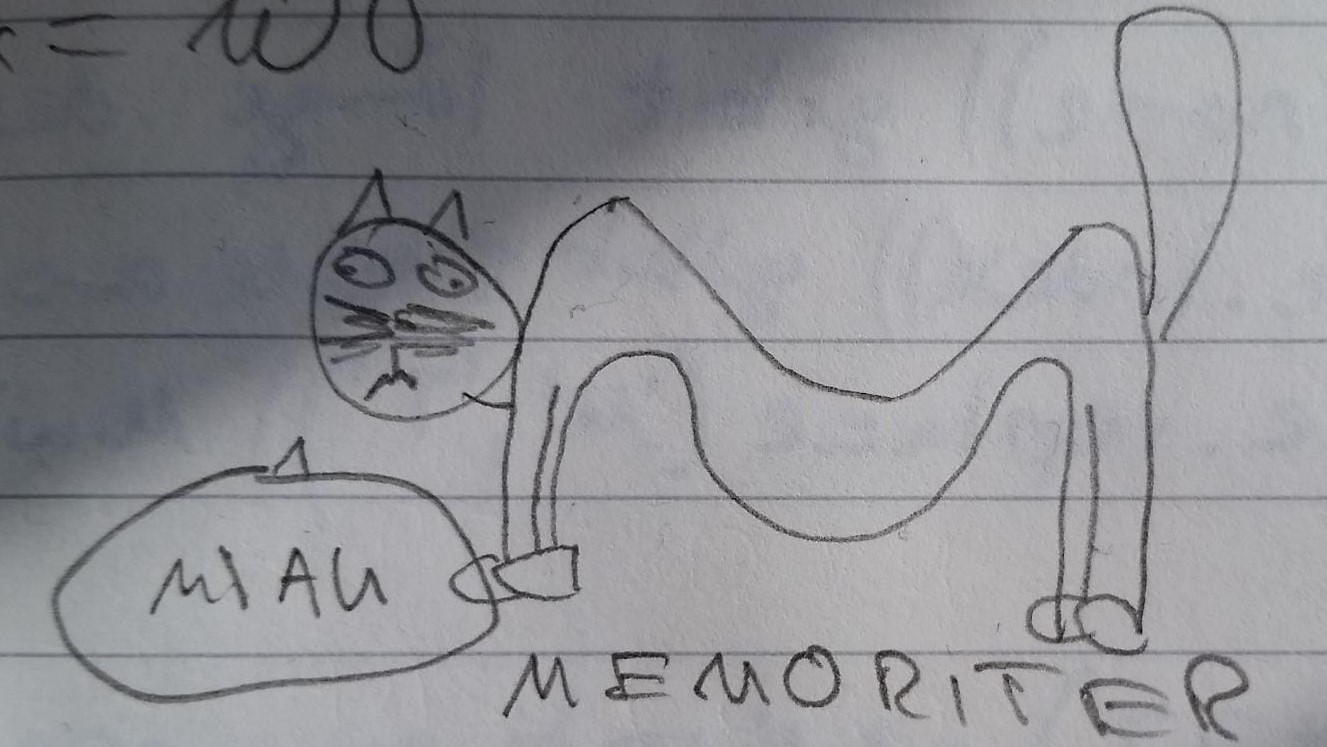 = 100
MIAU
MEMORITER